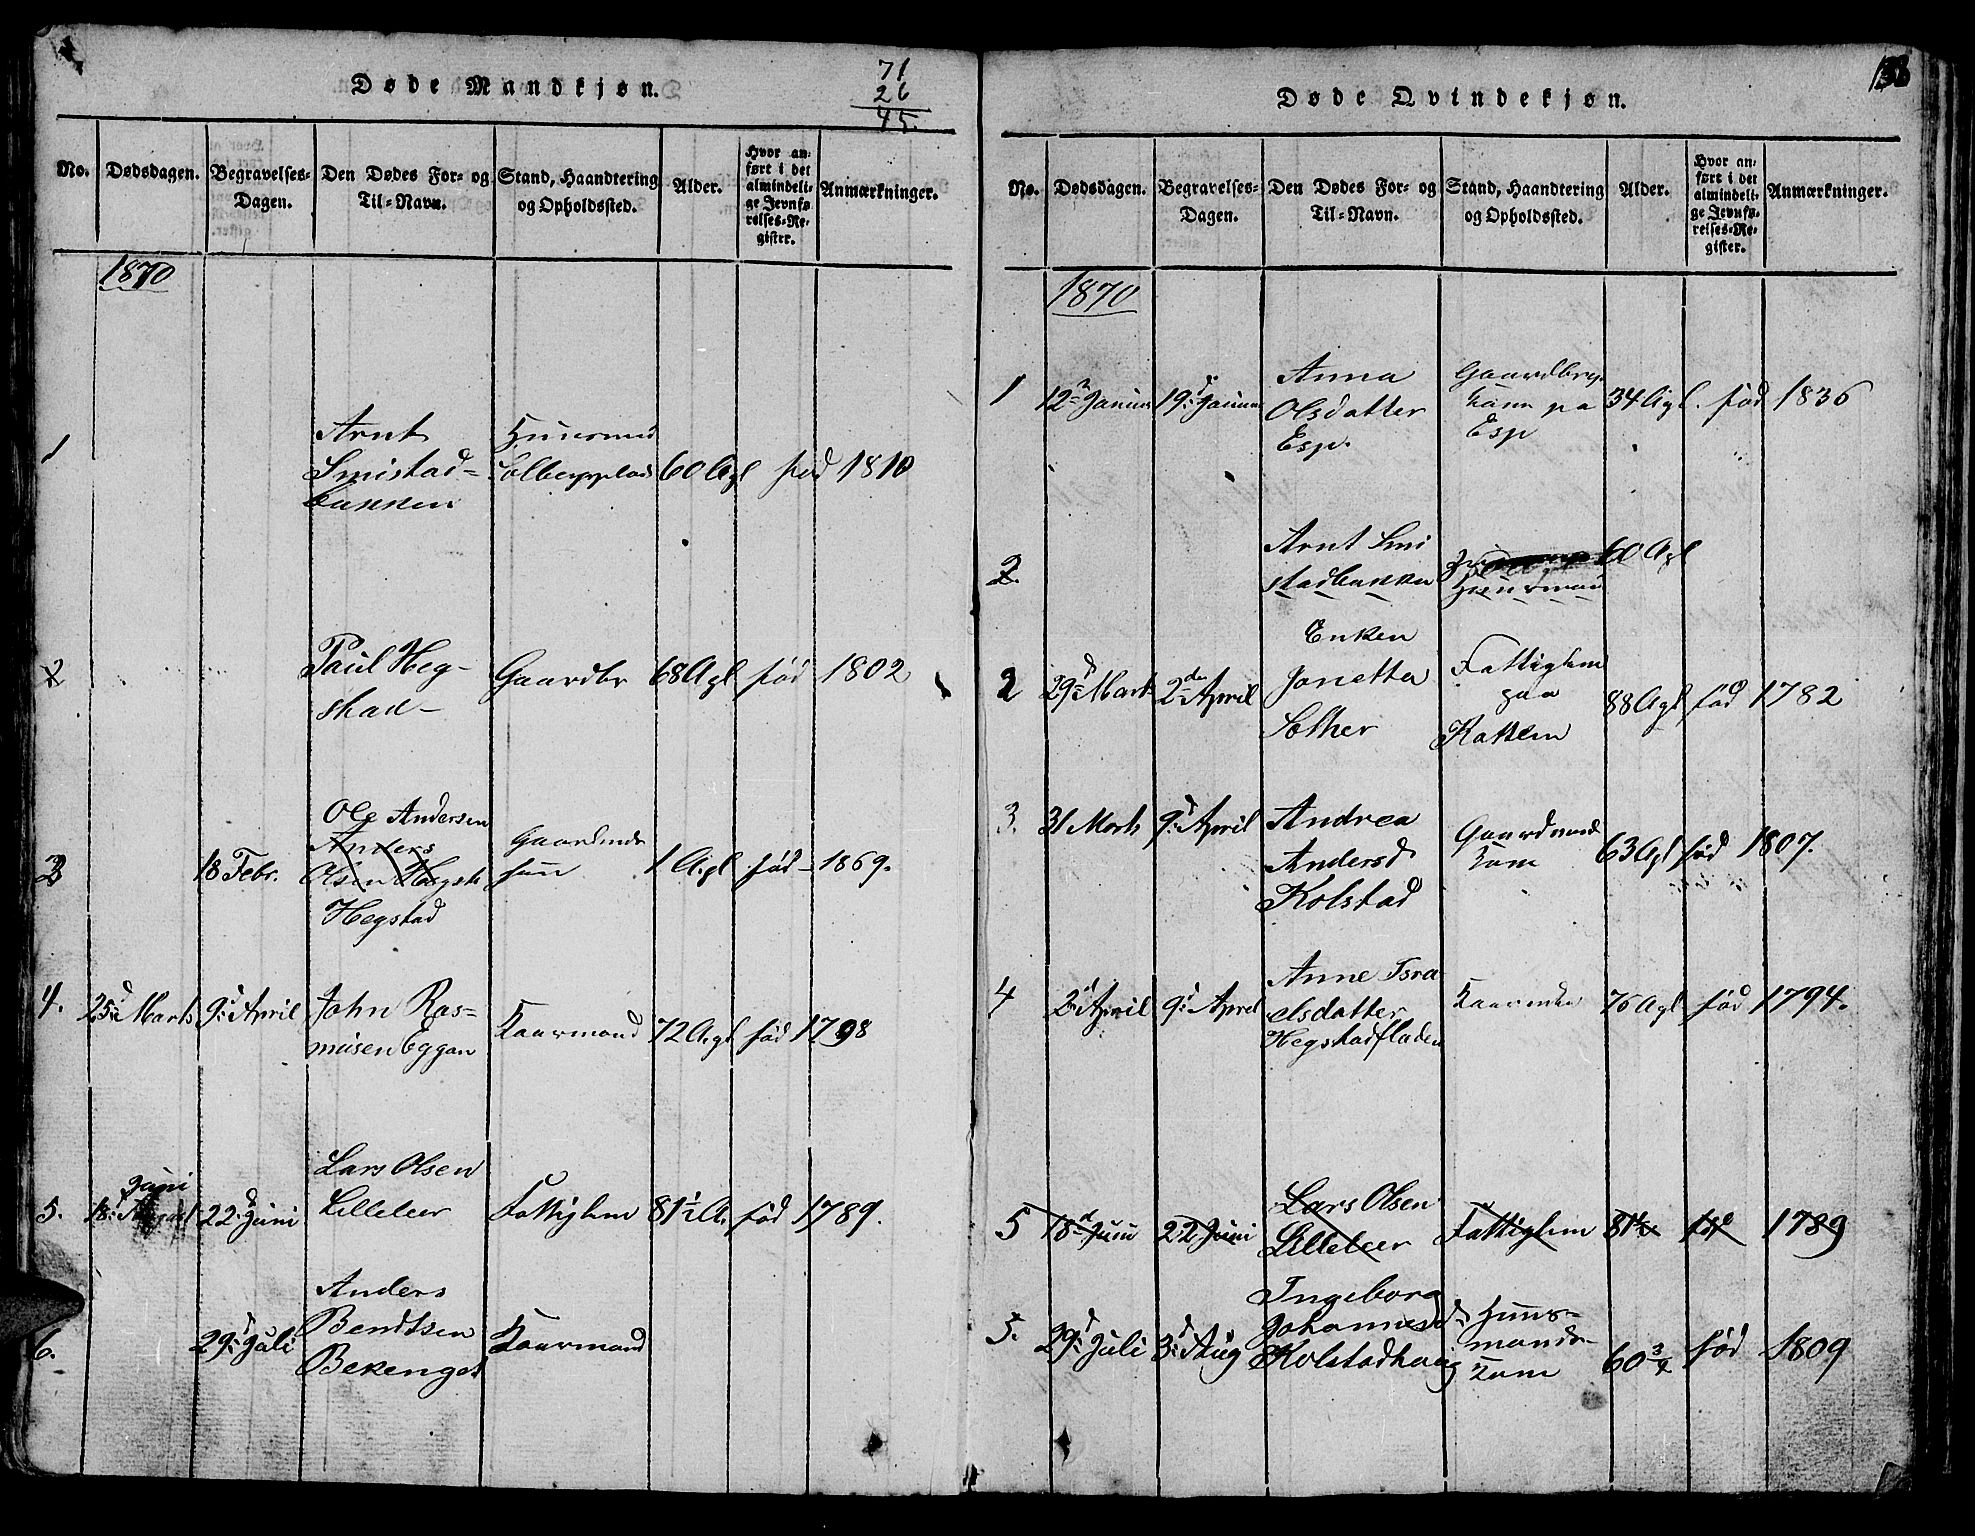 Døde Mandkjøn.
71
26
45.
No.
Dødsdagen.
Begravelses-
Dagen.
Den Dødes For- og
Til-Navn.
Stand, Haandtering
og Opholdssted.
Alder.
Hvor an-
ført i det
almindeli-
ge Jevnfø-
relses-Re-
gister.
Anmærkninger.
1870
1
Arnt
Smistad-
bakken
60 Aar fød 1810
2
Paul Heg-
stad-
Gaardbr 68 Agl fød 1802
3
18 Febr.
Ole Andersen
Anders
Olsen Hegst
Hegstad
1 Agl fød 1869.
4. 25d Marts 9d April
John Ras-
musen Eggan
Kaarmand 72 Agl fød 1798
5. 18d Juni 22d Juni
Lars Olsen
Lilleleer
Fattiglem 81½ A. fød 1789.
6. 29d Juli
Anders
Bendtsen
Bekenget
Kaarmand
Døde Qvindekjøn.
138
No.
Dødsdagen.
Begravelses-
Dagen.
Den Dødes For- og
Til-Navn.
Stand, Haandtering
og Opholdssted.
Alder.
Hvor an-
ført i det
almindeli-
ge Jevnfø-
relses-Re-
gister.
Anmærkninger.
1870
1 12 Januar 19d Januar
Anna
Olsdatter
Esp.
Kone pa
Esp
34 Agl. fød 1836
2.
Arnt Smi
stadbakken
Huusmand
60 Agl
2 29d Marts 2den April
Enken
Jonetta
Solher
Fattiglem
paa
Kattem
88 Agl fød 1782
3. 31 Marts 9d April
Andrea
Andersd
Kolstad
Gaardmands
Kone
63 Agl fød 1807.
4 2d April 9d April
Anne Isra
elsdatter
Hegstadfladen
76 Agl fød 1794.
5 18d Juni 22 Juni
Lars Olsen
Lilleleer
Fattiglem 81½ fød 1789
5. 29d Juli 3d Aug
Ingeborg
Johannesd
Kolstadhaug
Huus-
mands-
Kone
60¾ fød 1809